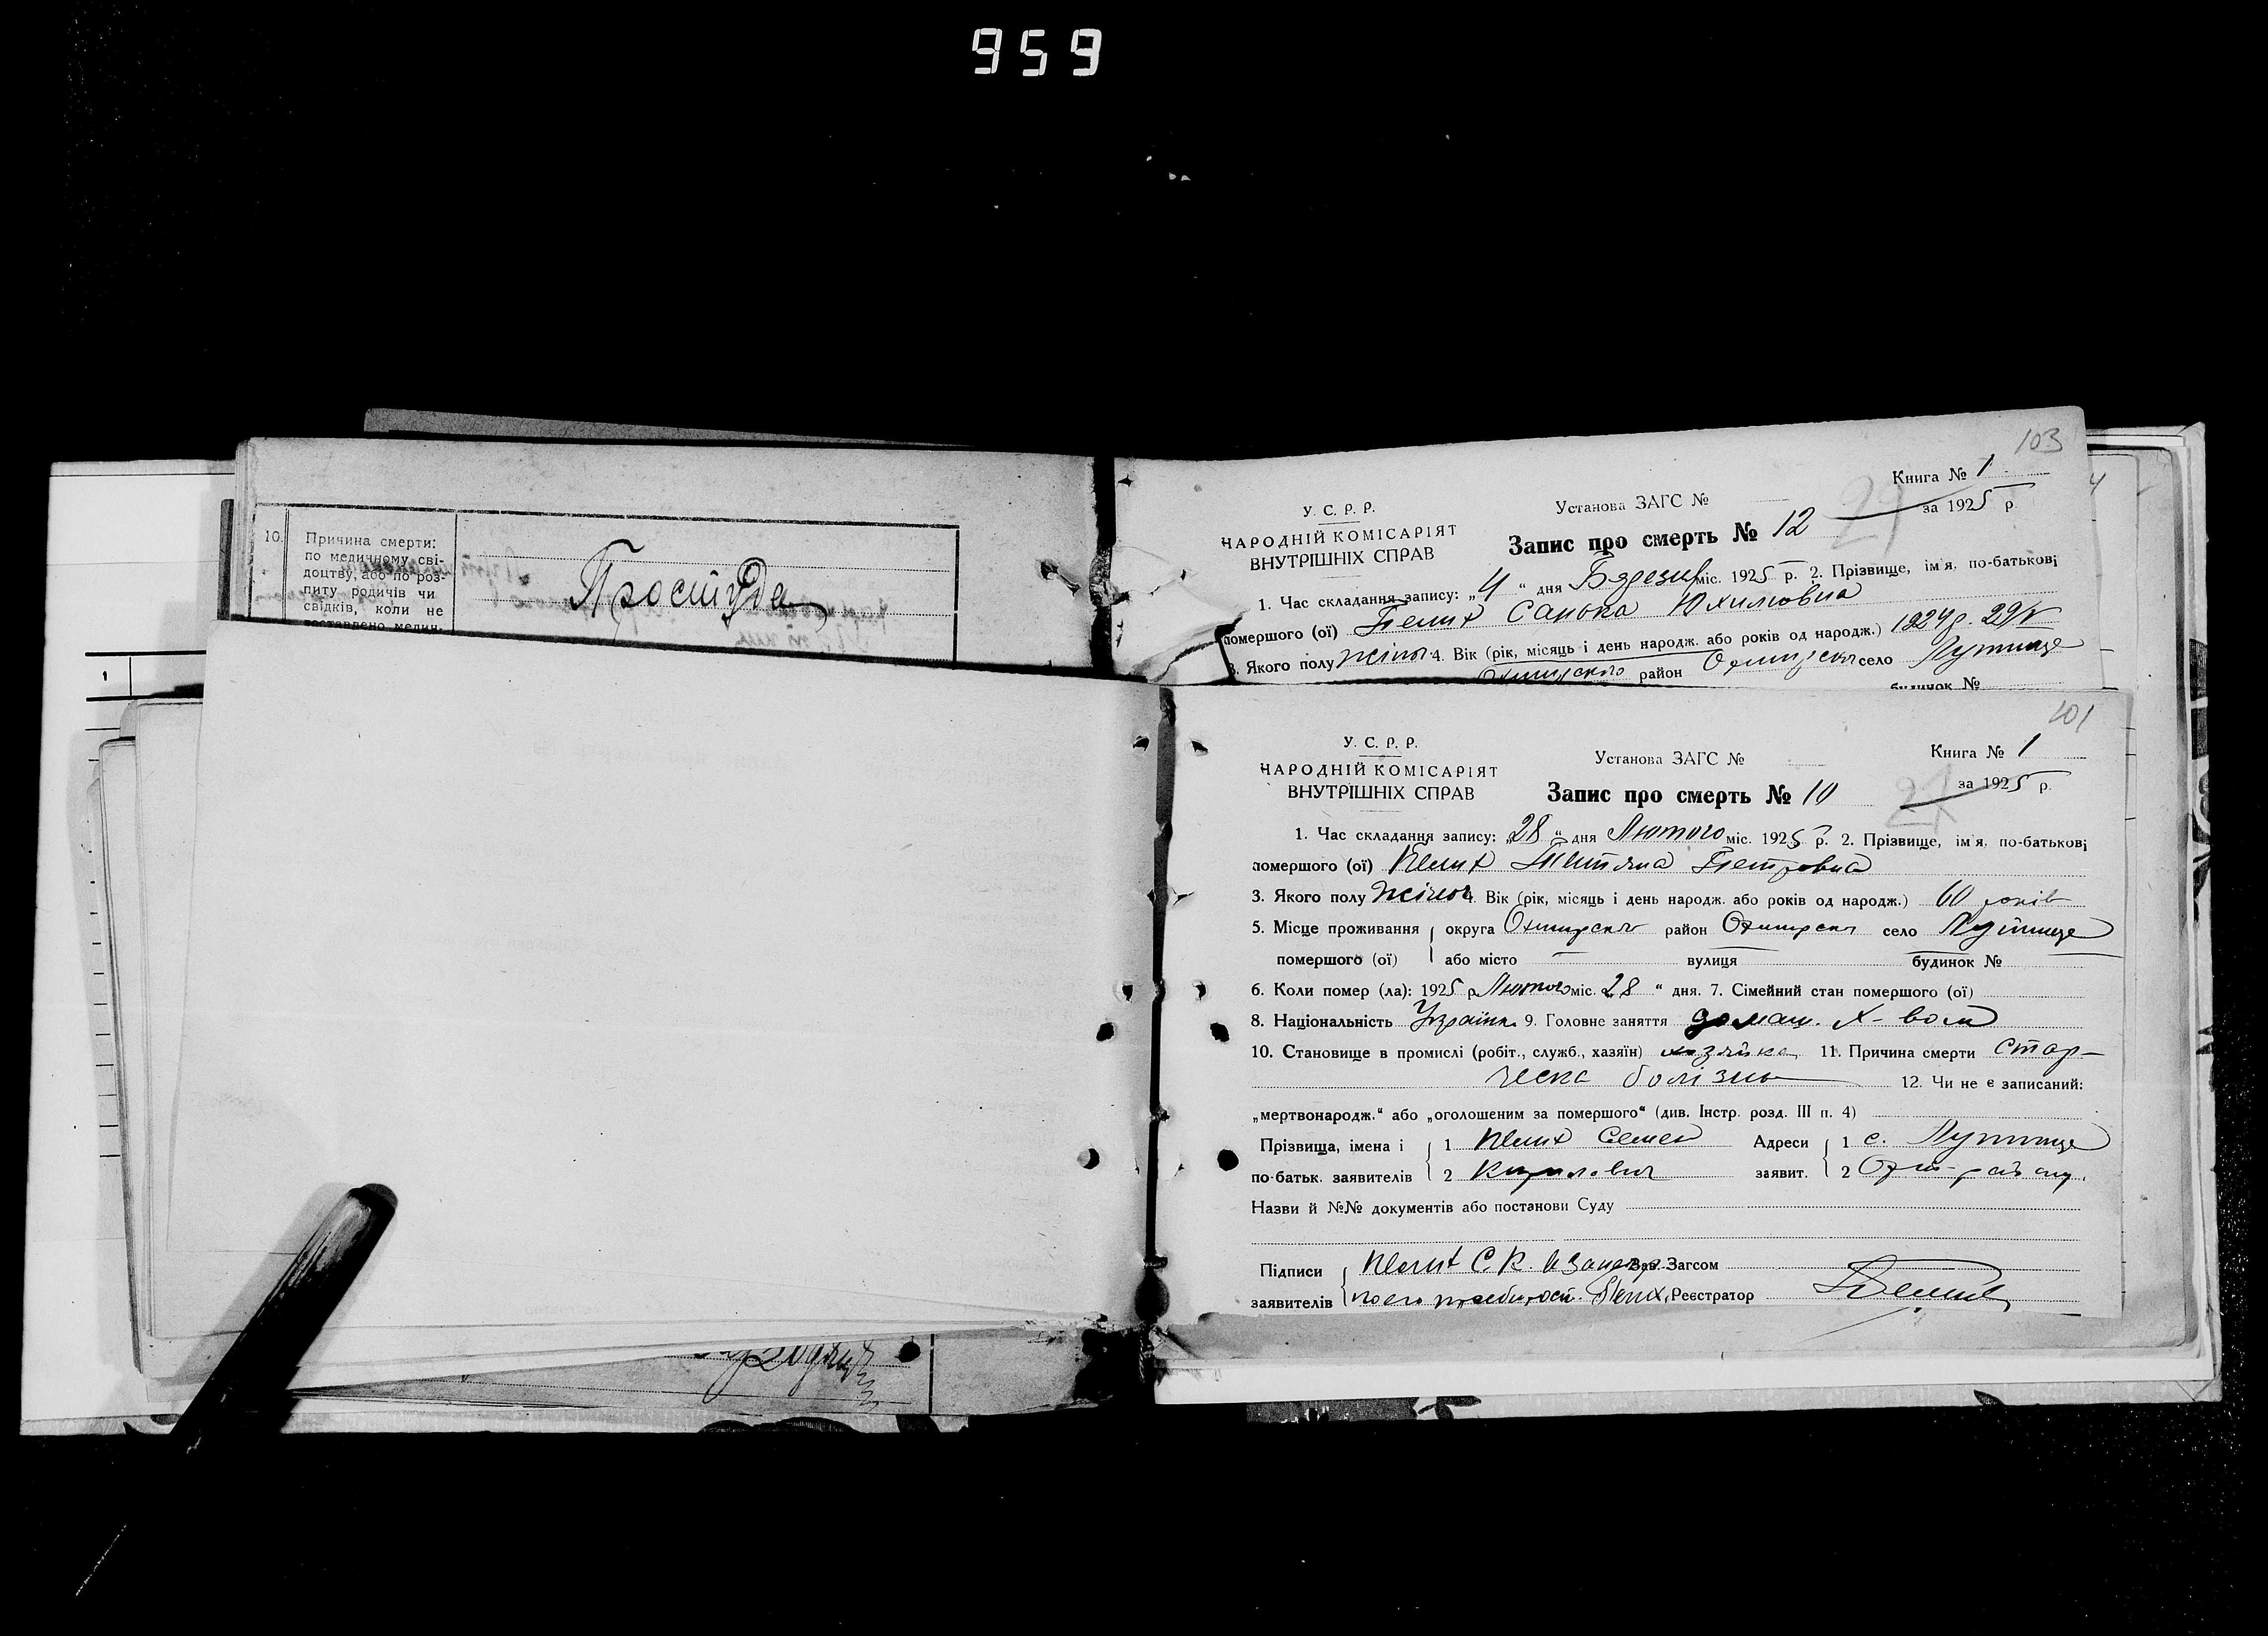 959
10. Причина смерти:
по медичному сві-
доцтву, або по роз-
питу родичів чи
свідків, коли не
поставлено медич-
Простуда
1
103
Книга № 1
У. С. Р. Р.
Установа ЗАГС №
за 1925 р.
НАРОДНІЙ КОМІСАРІЯТ
ВНУТРІШНІХ СПРАВ
Запис про смерть № 12
27
1. Час складання запису: „4“ дня міс. 1925 р. 2. Прізвище, імя, по-батькові
помершого (ої) Пелих Санька Юхимовна
3. Якого полу жіноч. 4. Вік (рік, місяць і день народж. або років од народж.) 1924 р. 29/V
район село Лутище
будинок №
4
101
У. С. Р. Р.
Установа ЗАГС №
Книга № 1
НАРОДНІЙ КОМІСАРІЯТ
за 1925 р.
ВНУТРІШНІХ СПРАВ
Запис про смерть № 10
27
1. Час складання запису: „28“ дня Лютого міс. 1925 р. 2. Прізвище, імя, по-батькові
помершого (ої) Пелих Тетяна Петровна
3. Якого полу жіноч 4. Вік (рік, місяць і день народж. або років од народж.) 60 років
5. Місце проживання округа район село Лутище
помершого (ої) або місто — вулиця — будинок № —
6. Коли помер (ла): 1925 р. Лютого міс. „28“ дня. 7. Сімейний стан помершого (ої)
8. Національність Українк. 9. Головне заняття домаш. х-вом
10. Становище в промислі (робіт., служб., хазяїн) хазяйка 11. Причина смерти стар-
ческа болізнь 12. Чи не є записаний:
„мертвонародж.“ або „оголошеним за помершого“ (див. Інстр. розд. III п. 4)
Прізвища, імена і 1 Пелих Семен Адреси 1 с. Лутище
по-батьк. заявителів 2 Кирилович заявит. 2
Назви й №№ документів або постанови Суду
Підписи Пелих С. К. Зав. Загсом
заявителів Пелих Реєстратор